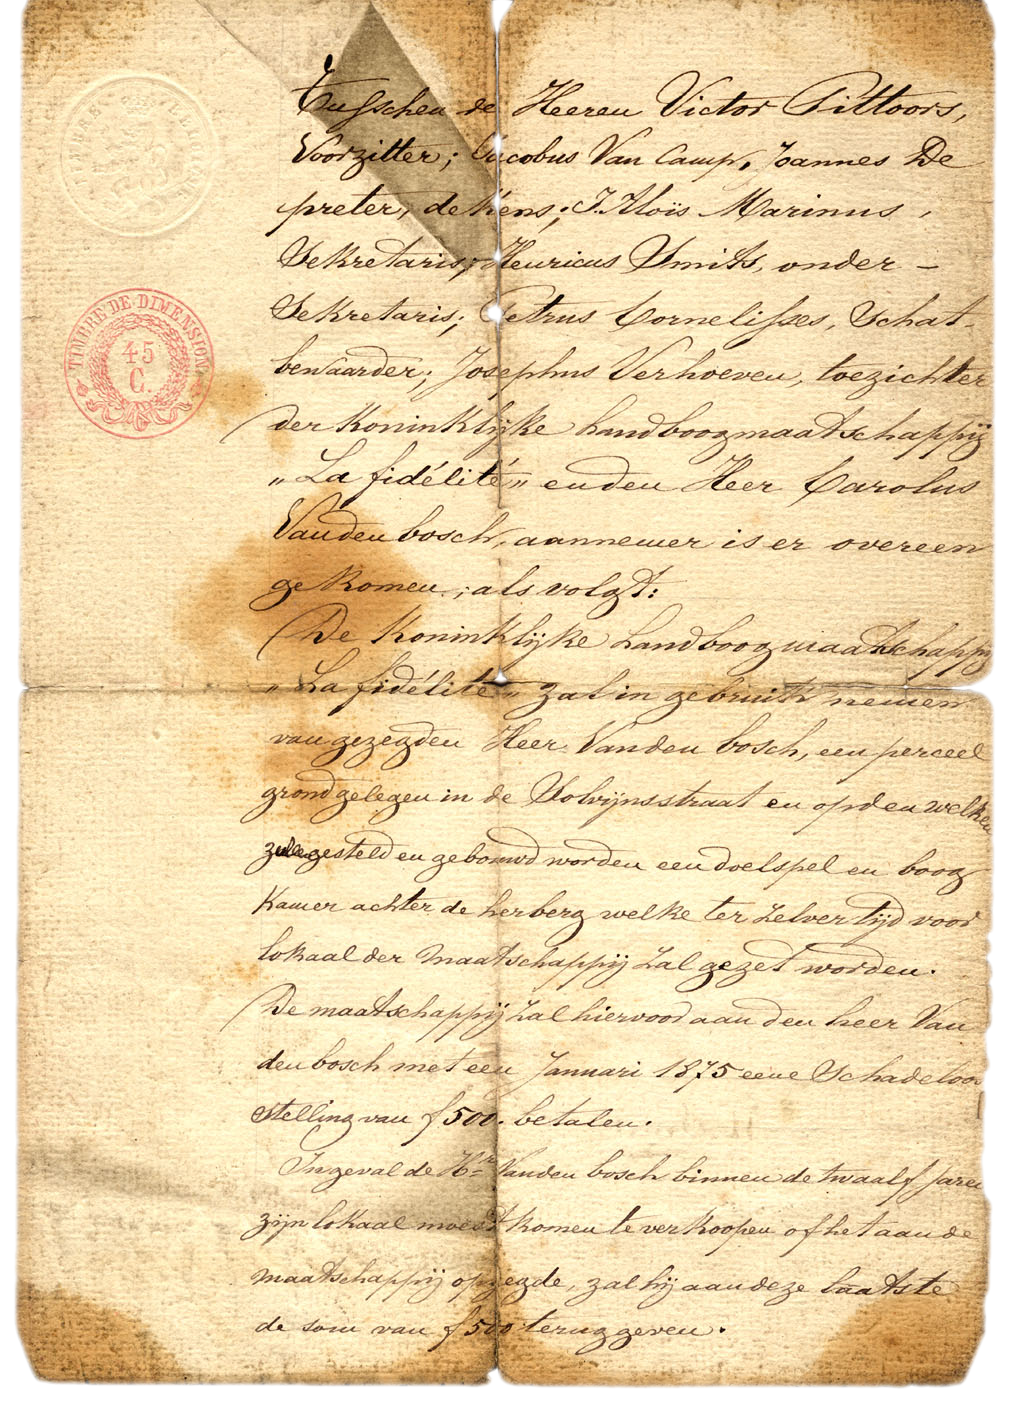 TIMBRE DE DIMENSION
45
C.
Tusschen de Heeren Victor Pittoors,
Voorzitter; Jacobus Van Camp, Joannes De
preter, dekens; J. Aloïs Marinus,
Sekretaris; Henricus Smits, onder-
Sekretaris; Petrus Cornelisses, Schat-
bewaarder; Josephus Verhoeven, toezichter
der Koninklijke handboogmaatschappij
„La fidélité„ en den Heer Carolus
Vanden bosch, aannemer is er overeen
gekomen, als volgt:
De Koninklijke handboogmaatschappij
„La fidélité„ zal in gebruik nemen
van gezegden Heer Vanden bosch, een perceel
grond gelegen in de Solvijnsstraat en op den welken
zullen gesteld en gebouwd worden een doelspel en boog
Kamer achter de herberg welke ter zelver tijd voor
lokaal der maatschappij zal gezet worden.
De maatschappij zal hiervoor aan den heer Van
den bosch met een Januari 1875 eene Schadeloo
stelling van f 500. betalen.
In geval de Hr Vanden bosch binnen de twaalf jaren
zijn lokaal moest komen te verkoopen of het aan de
maatschappij opzegde, zal hij aan deze laatste
de som van f 500 teruggeven.